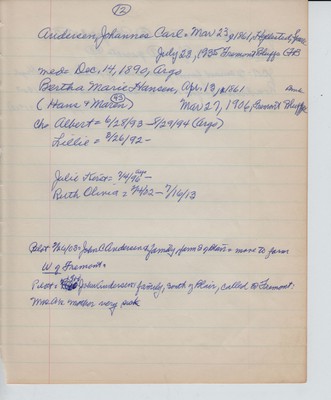 12
Andersen, Johannes Carl = Mar 23, 1861, Denmark
July 23, 1935 Fremont Bluffs
med = Dec, 14, 1890, Argo
Bertha Marie Hansen, Apr. 13, 1861
(Hans & Maren) Mar 27, 1906, Fremont Bluffs
43
ch Albert = 6/28/93 - 8/29/94 (Argo)
Lillie = 8/26/92 -
Julie = 3/4/96 -
Ruth Olivia = 3/4/02 - 7/16/13
7/26/03: John C Andersen & family, farm = move to farm
W of Fremont.
John Andersen & family, south of Blair, called to Fremont:
Mrs A's mother very sick